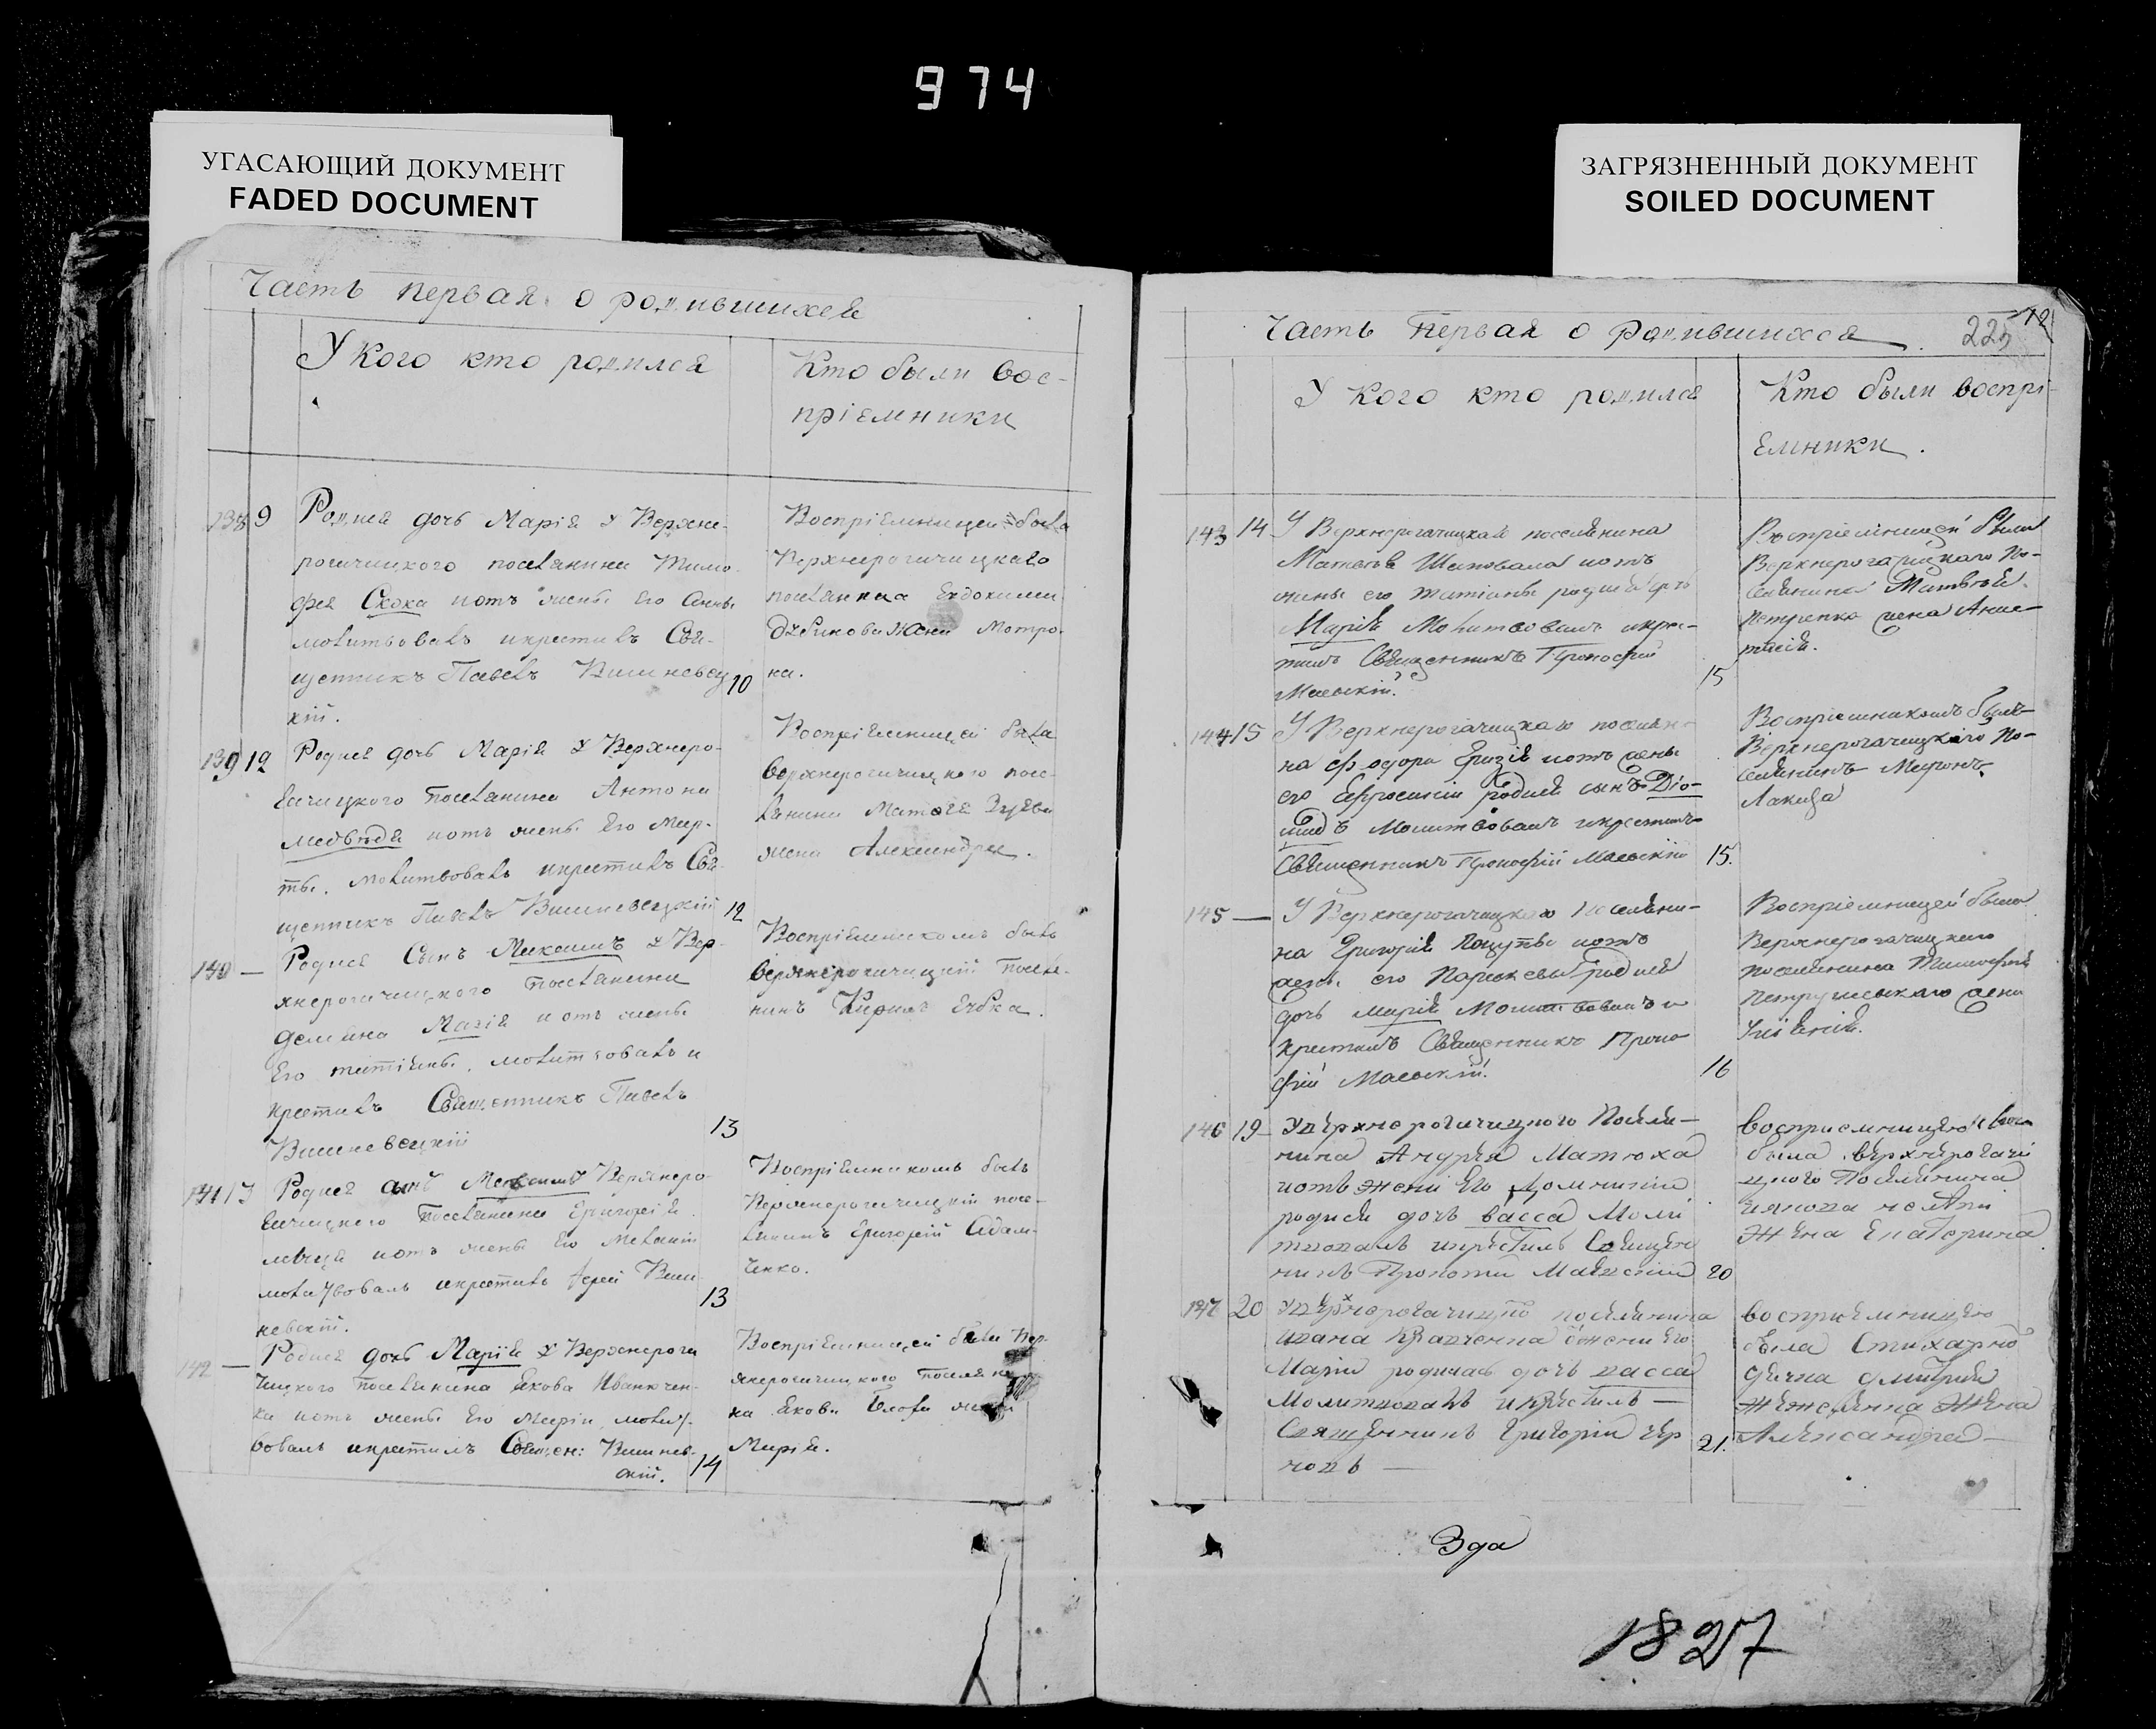 974
УГАСАЮЩИЙ ДОКУМЕНТ
FADED DOCUMENT
ЗАГРЯЗНЕННЫЙ ДОКУМЕНТ
SOILED DOCUMENT
Часть первая о родившихся
У кого кто родился
Кто были вос-
пріемники
138 9 Родися дочь Марія у Верхне-
рогачицкого поселянина Тимо-
фея Скока иотъ жены его Анны
молитвовалъ икрестилъ Свя-
щенникъ Павелъ Вишневец
кій.
10
Воспріемницею была
Верхнерогачицкаго
поселянина Евдокима
жена Мотро-
на.
139 12 Родися дочь Марія у Верхнеро-
гачицкого поселянина Антона
Медведя иотъ жены его Мар-
ты. молитвовалъ икрестилъ Свя-
щенникъ Павелъ Вишневецкій
12
Воспріемницей была
верхнерогачицкого посе-
лянина Матвея Зуева
жена Александра.
140 — Родися Сынъ Максимъ у Вер-
хнерогачицкого поселянина
Демяна иотъ жены
Его татіяны. молитвовалъ и
крестилъ Священникъ Павелъ
Вишневецкій
13
Воспріемникомъ былъ
верхнерогачицкій поселя-
нинъ Кирилъ
141 13 Родися сынъ Максимъ Верхнеро-
гачицкого поселянина Григорія
иотъ жены его Меланіи
молитвовалъ икрестилъ Іерей Виш-
невскій.
13
Воспріемникомъ былъ
Верхнерогачицкій посе-
лянинъ Григорій Адам-
ченко.
142 — Родися дочь Марія у Верхнерога
чицкого поселянина Якова Иванючен-
ка иотъ жены Его Маріи молит-
вовалъ икрестилъ Священ: Вишнев-
скій.
14
Воспріемницей была Вер-
хнерогачицкого поселяни-
на Якова жена
Марія.
Часть Первая о родившихся. 225
12
У кого кто родился
Кто были воспрі-
емники.
143 14 У Верхнерогачицкаго поселянина
Матвея Шаповала иотъ
жены его Татіаны родися дочь
Марія Молитвовалъ икрес-
тилъ Священникъ Прокофій
Маевскій.
15
Воспріемницей была
Верхнерогачицкаго По-
селянина Матвея
Петренка жена Анас-
тасія.
144 15 У Верхнерогачицкаго поселяни-
на Федора иотъ жены
его Евфросиніи родися сынъ Діо-
мидъ Молитвовалъ икрестилъ
Священникъ Прокофій Маевскій
15.
Воспріемникомъ былъ
Верхнерогачицкаго По-
селянинъ Миронъ
Лакиза
145 — У Верхнерогачицкаго Поселяни-
на Григорія иотъ
жены его Параскевы родися
дочь Марія Молитвовалъ и
крестилъ Священникъ Проко
фій Маевскій.
16
Воспріемницей была
Верхнерогачицкаго
поселянина Тимофея
жена
146 19 увѣрхнерогачицкого Поселя-
нина Андрея Матюха
иотъ жени Его Домникіи
родися дочь васса Моли
твовалъ икрѣстилъ Священ
никъ Прокопи Маевскій
20
восприемницею
была вѣрхнерогачи
цкого Поселянина
жена Екатерина
147 20 увѣрхнерогачицко поселянина
ивана Кравченка ижени Его
Маріи родилась дочь васса
Молитвовалъ икрѣстилъ —
Священникъ Григорій чер
новъ —
21.
восприемницею
была Стихарно
дячка Дмитрия
жена
Александра —
Зда
1827